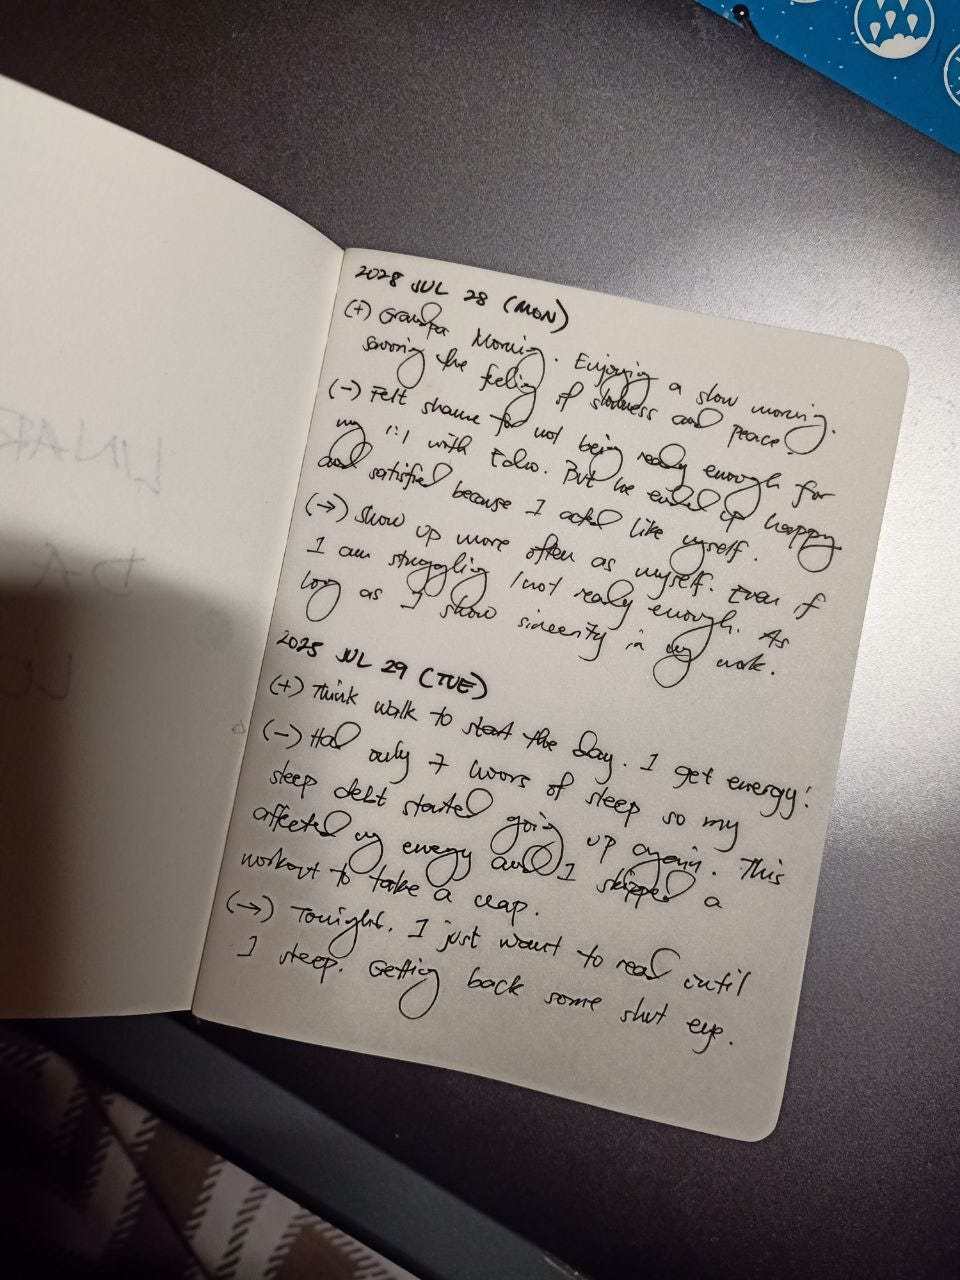 2028 JUL 28 (MON)
(+) Grandpa Morning. Enjoying a slow morning.
Savoring the feeling of slowness and peace.
(-) Felt shame for not being ready enough for
my 1:1 with. But he ended up happy
and satisfied because I acted like myself.
(→) Show up more often as myself. Even if
I am struggling / not ready enough. As
long as I show sincerity in my work.
2025 JUL 29 (TUE)
(+) Think walk to start the day. I get energy!
(-) Had only 7 hours of sleep so my
sleep debt started going up again. This
affected my energy and I skipped a
workout to take a nap.
(→) Tonight. I just want to read until
I sleep. Getting back some shut eye.